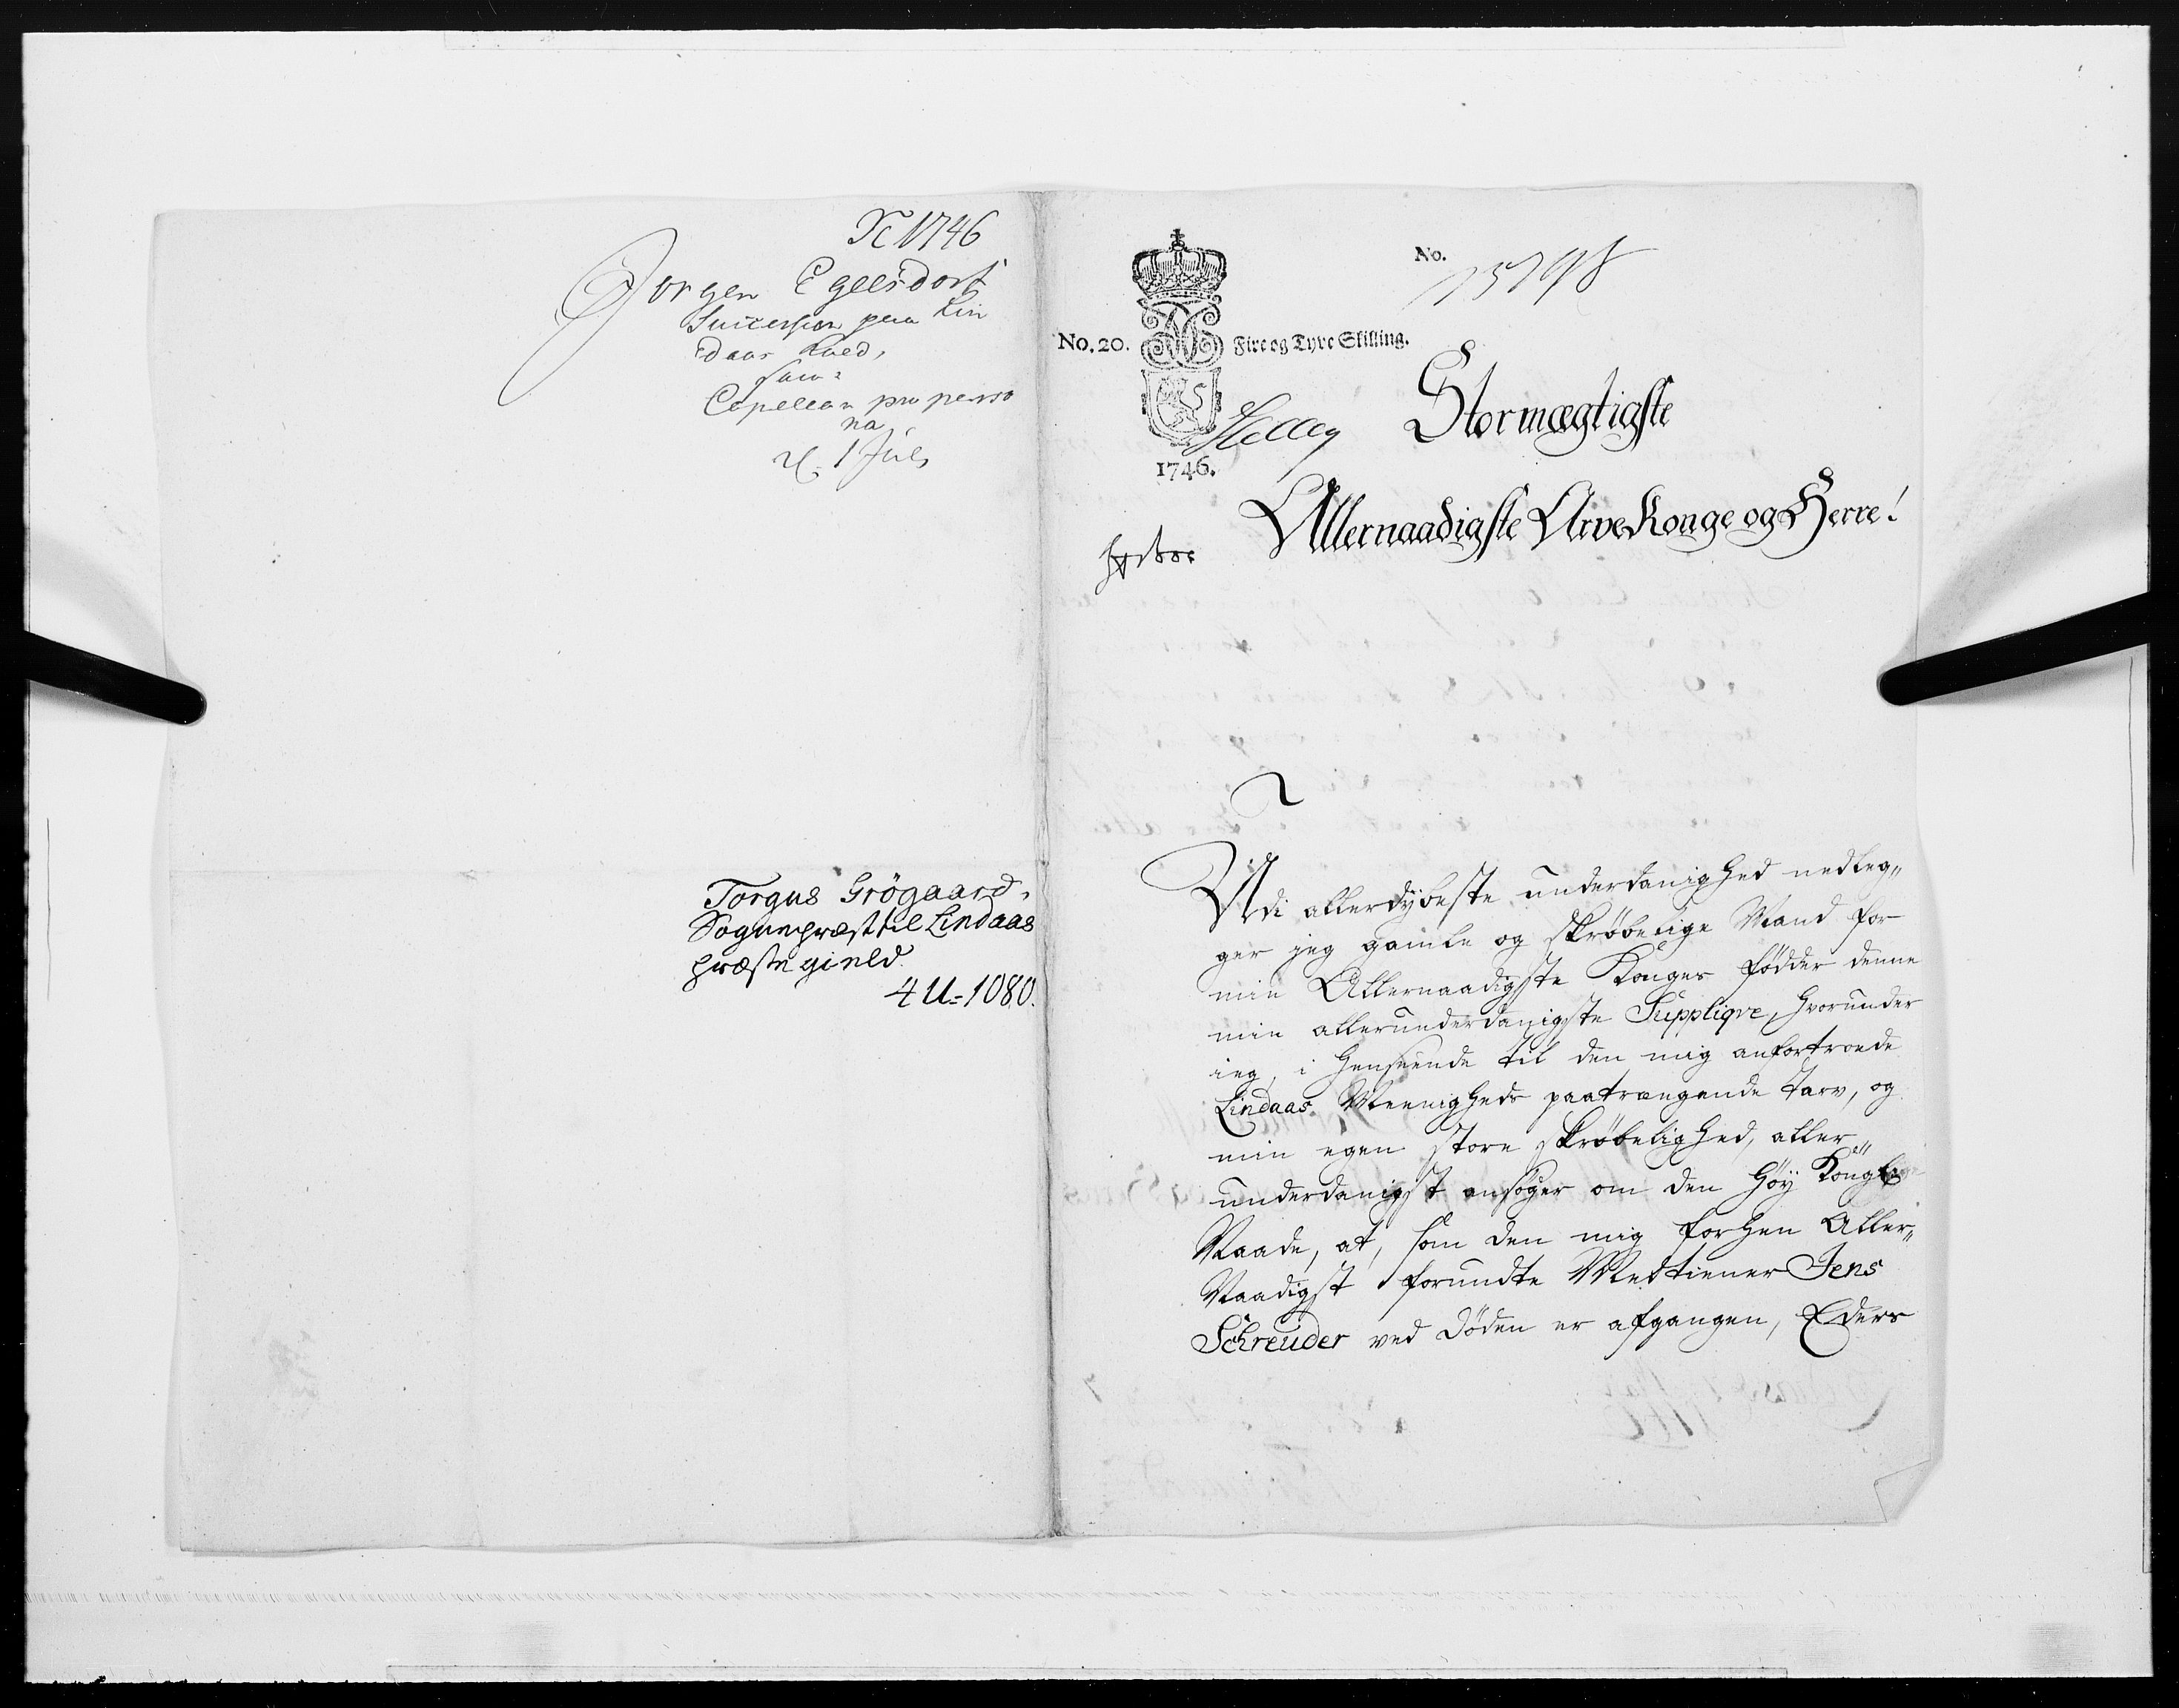 1746
Jorgen Egersdorf
Succession paa Lin
daas Kald,
samt
Capellan pro perso
na
d. 1 Juli
Torgus Grögaard,
Sognepræst til Lindaas
præstegield.
4 U=1080.
No.
15798
No. 20. Fire og Tyve Skilling.
1746.
Stormægtigste
Allernaadigste Arve Konge og Herre!
Udi allerdybeste underdanighed nedleg„
ger jeg gamle og skrøbelige Mand for
min Allernaadigste Konges fødder denne
min allerunderdanigste Suppliqve, hvorunder
ieg, i henseende til den mig anfortroede
Lindaas Meenigheds paatrængende Tarv, og
min egen store skrøbelighed, aller„
underdanigst ansøger om den høy Kongl:
Naade, at, som den mig forhen Aller„
Naadigst forundte Medtiener Jens
Schreuder ved døden er afgangen, Eders